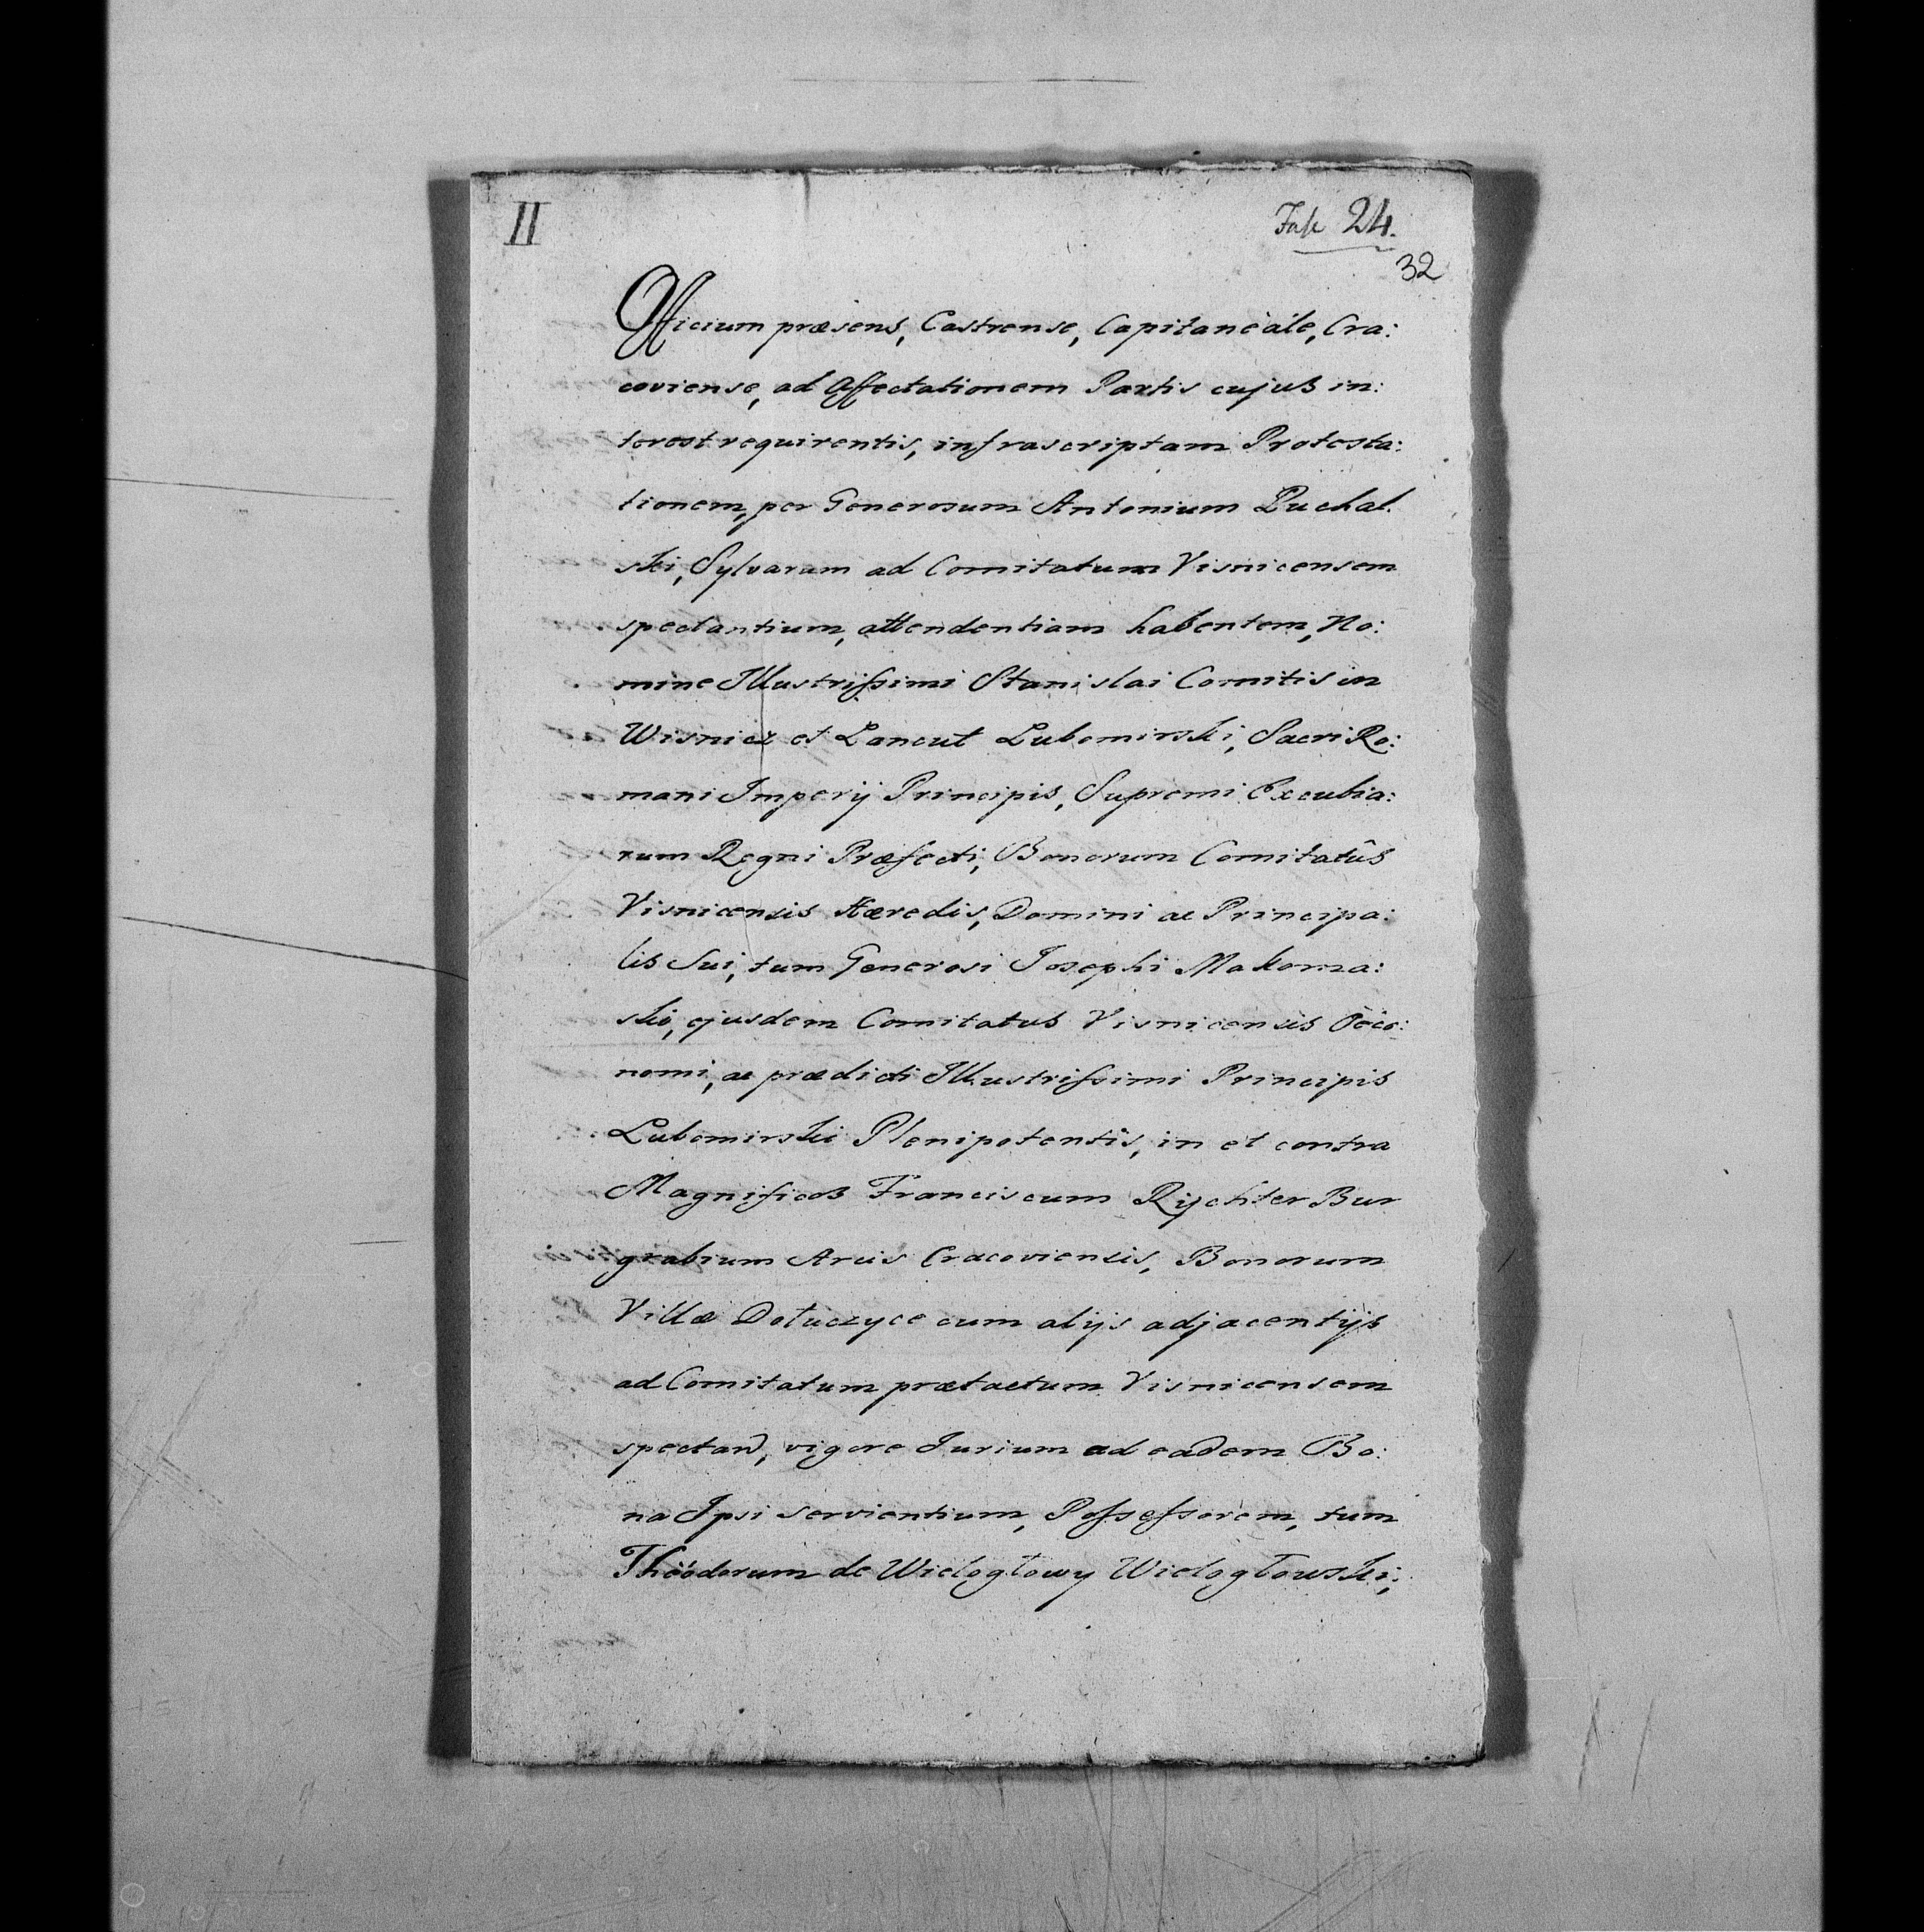 II
Fasc 24.
32
Officium præsens, Castrense, Capitanèále, Cra:
coviense, ad Affectationem Partis cujus in:
terest requirentis, infrascriptam Protesta:
tionem, per Generosum Antonium Puchal.
ski, Sylvarum ad Comitatum Visnicensem
spectantium, attendentiam habentem, No:
mine Illustrissimi Stanislai Comitis in
Wisnicz et Lancut Lubomirski, Sacri Ro:
mani Imperij Principis, Supremi Excubia:
rum Regni Præfecti, Bonorum Comitatûs
Visnicensis Hæredis, Domini ac Principa:
lis Sui, tum Generosi Josephi Makoma:
ski, ejusdem Comitatus Visnicensis Oèco:
nomi, ac prædicti Illustrissimi Principis
Lubomirski Plenipotentis, in et contra
Magnificos Franciscum Rychter Bur
grabium Arcis Cracoviensis, Bonorum
Villæ Dołuczyce cum alijs adjacentijs
ad Comitatum prætactum Visnicensem
spectan, vigore Jurium ad eadem Bo:
na Ipsi servientium, Possessorem, tum
Thèódorum de Wielogłowy Wielogłowski,